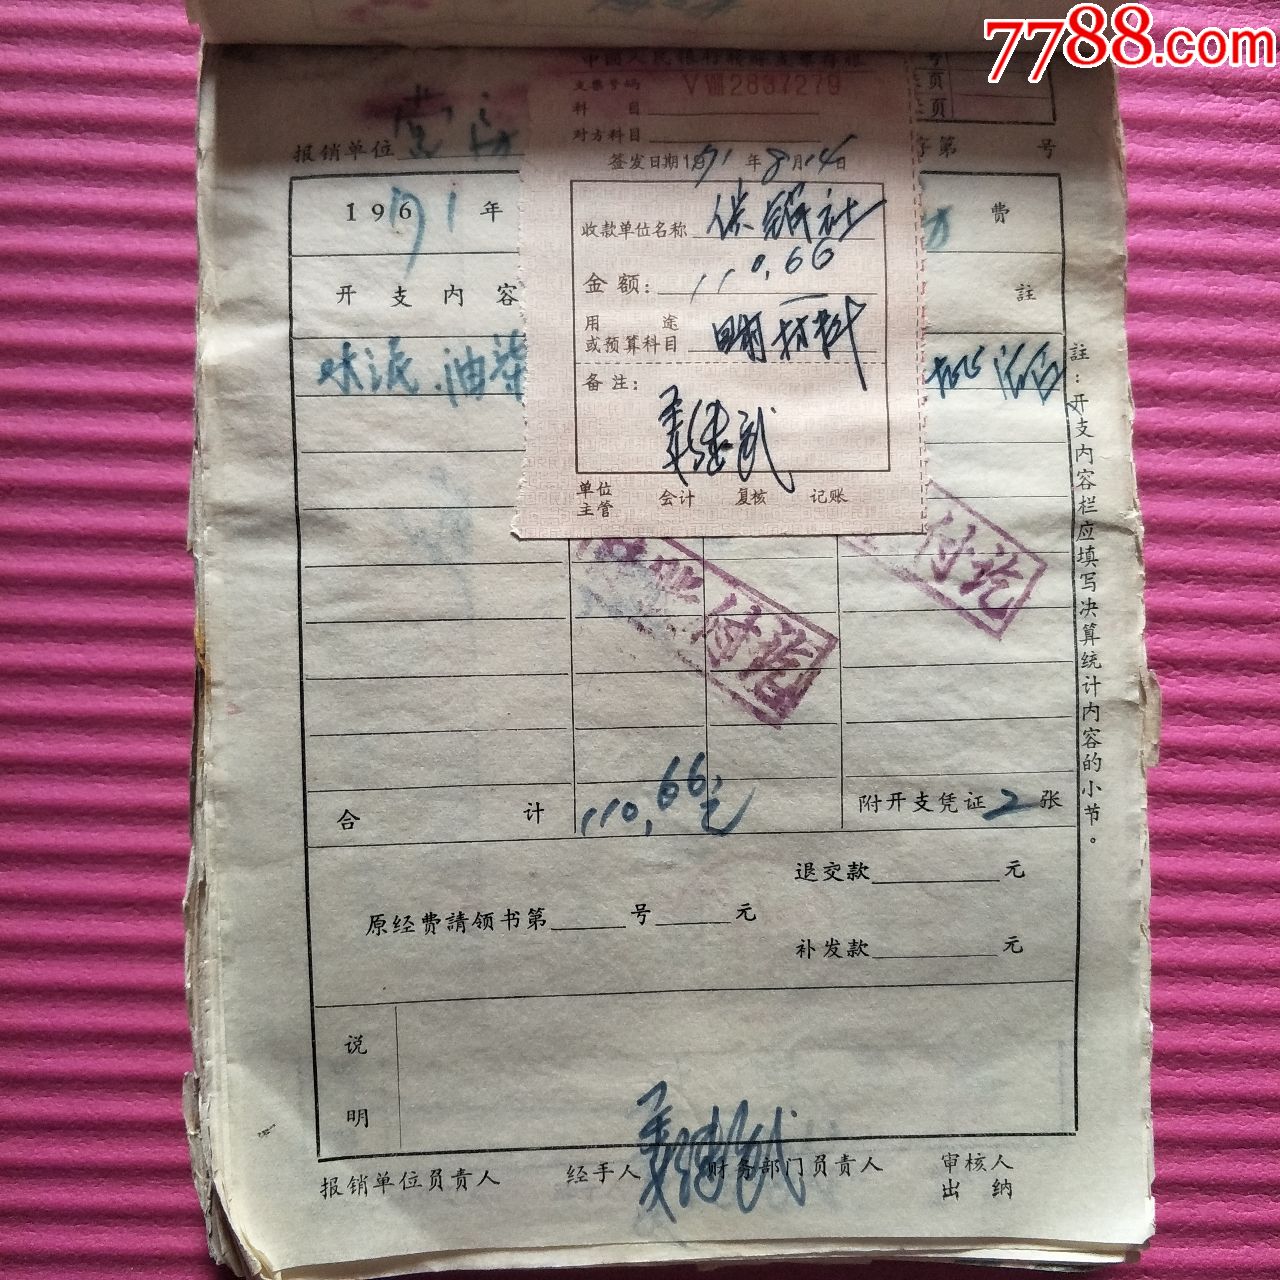 7788.com
中国人民银行转账支票存根
支票号码 VⅧ2837279
科 目
对方科目
签发日期1971年8月14日
收款单位名称
金额:110.66
用 途
或预算科目 材料
备注:
单位
主管 会计 复核 记账
号
页
页
报销单位
字第 号
1971年
费
开支内容
註
味派.油柴
註:开支内容栏应填写决算统计内容的小节。
付讫
付讫
合 计 110.66元
附开支凭证2张
退交款 元
原经费請领书第 号 元
补发款 元
说
明
报销单位负责人 经手人 财务部门负责人 审核人
出 纳